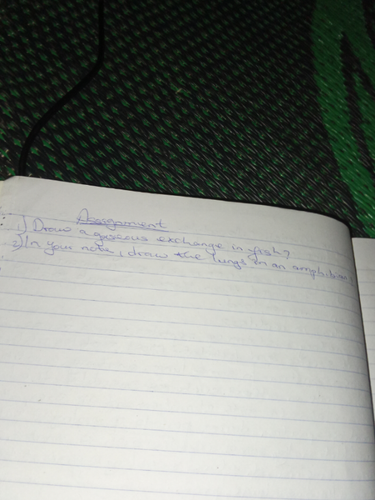 Assignment
1) Draw a gaseous exchange in fish?
2) In your note, draw the lungs in an amphibian